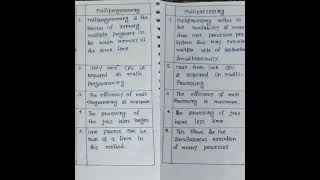 Multiprogramming
1. Multiprogramming is the
process of running
multiple programs in
the main memory at
the same time
2. only one CPU is
required in multi-
Programming
3. The efficiency of multi
Programming is minimum.
4. The processing of
the jobs takes longer.
5. one process can be
run at a time in
this method.
Multiprocessing
1. Multiprocessing refers to
the availability of more
than one processor per
system that may execute
multiple sets of instructions
Simultaneously
2. more than one CPU
is required in multi-
Processing
3. The efficiency of multi
Processing is maximum.
4. The processing of jobs
takes less time.
5. This allows for the
simultaneous execution
of many processes.